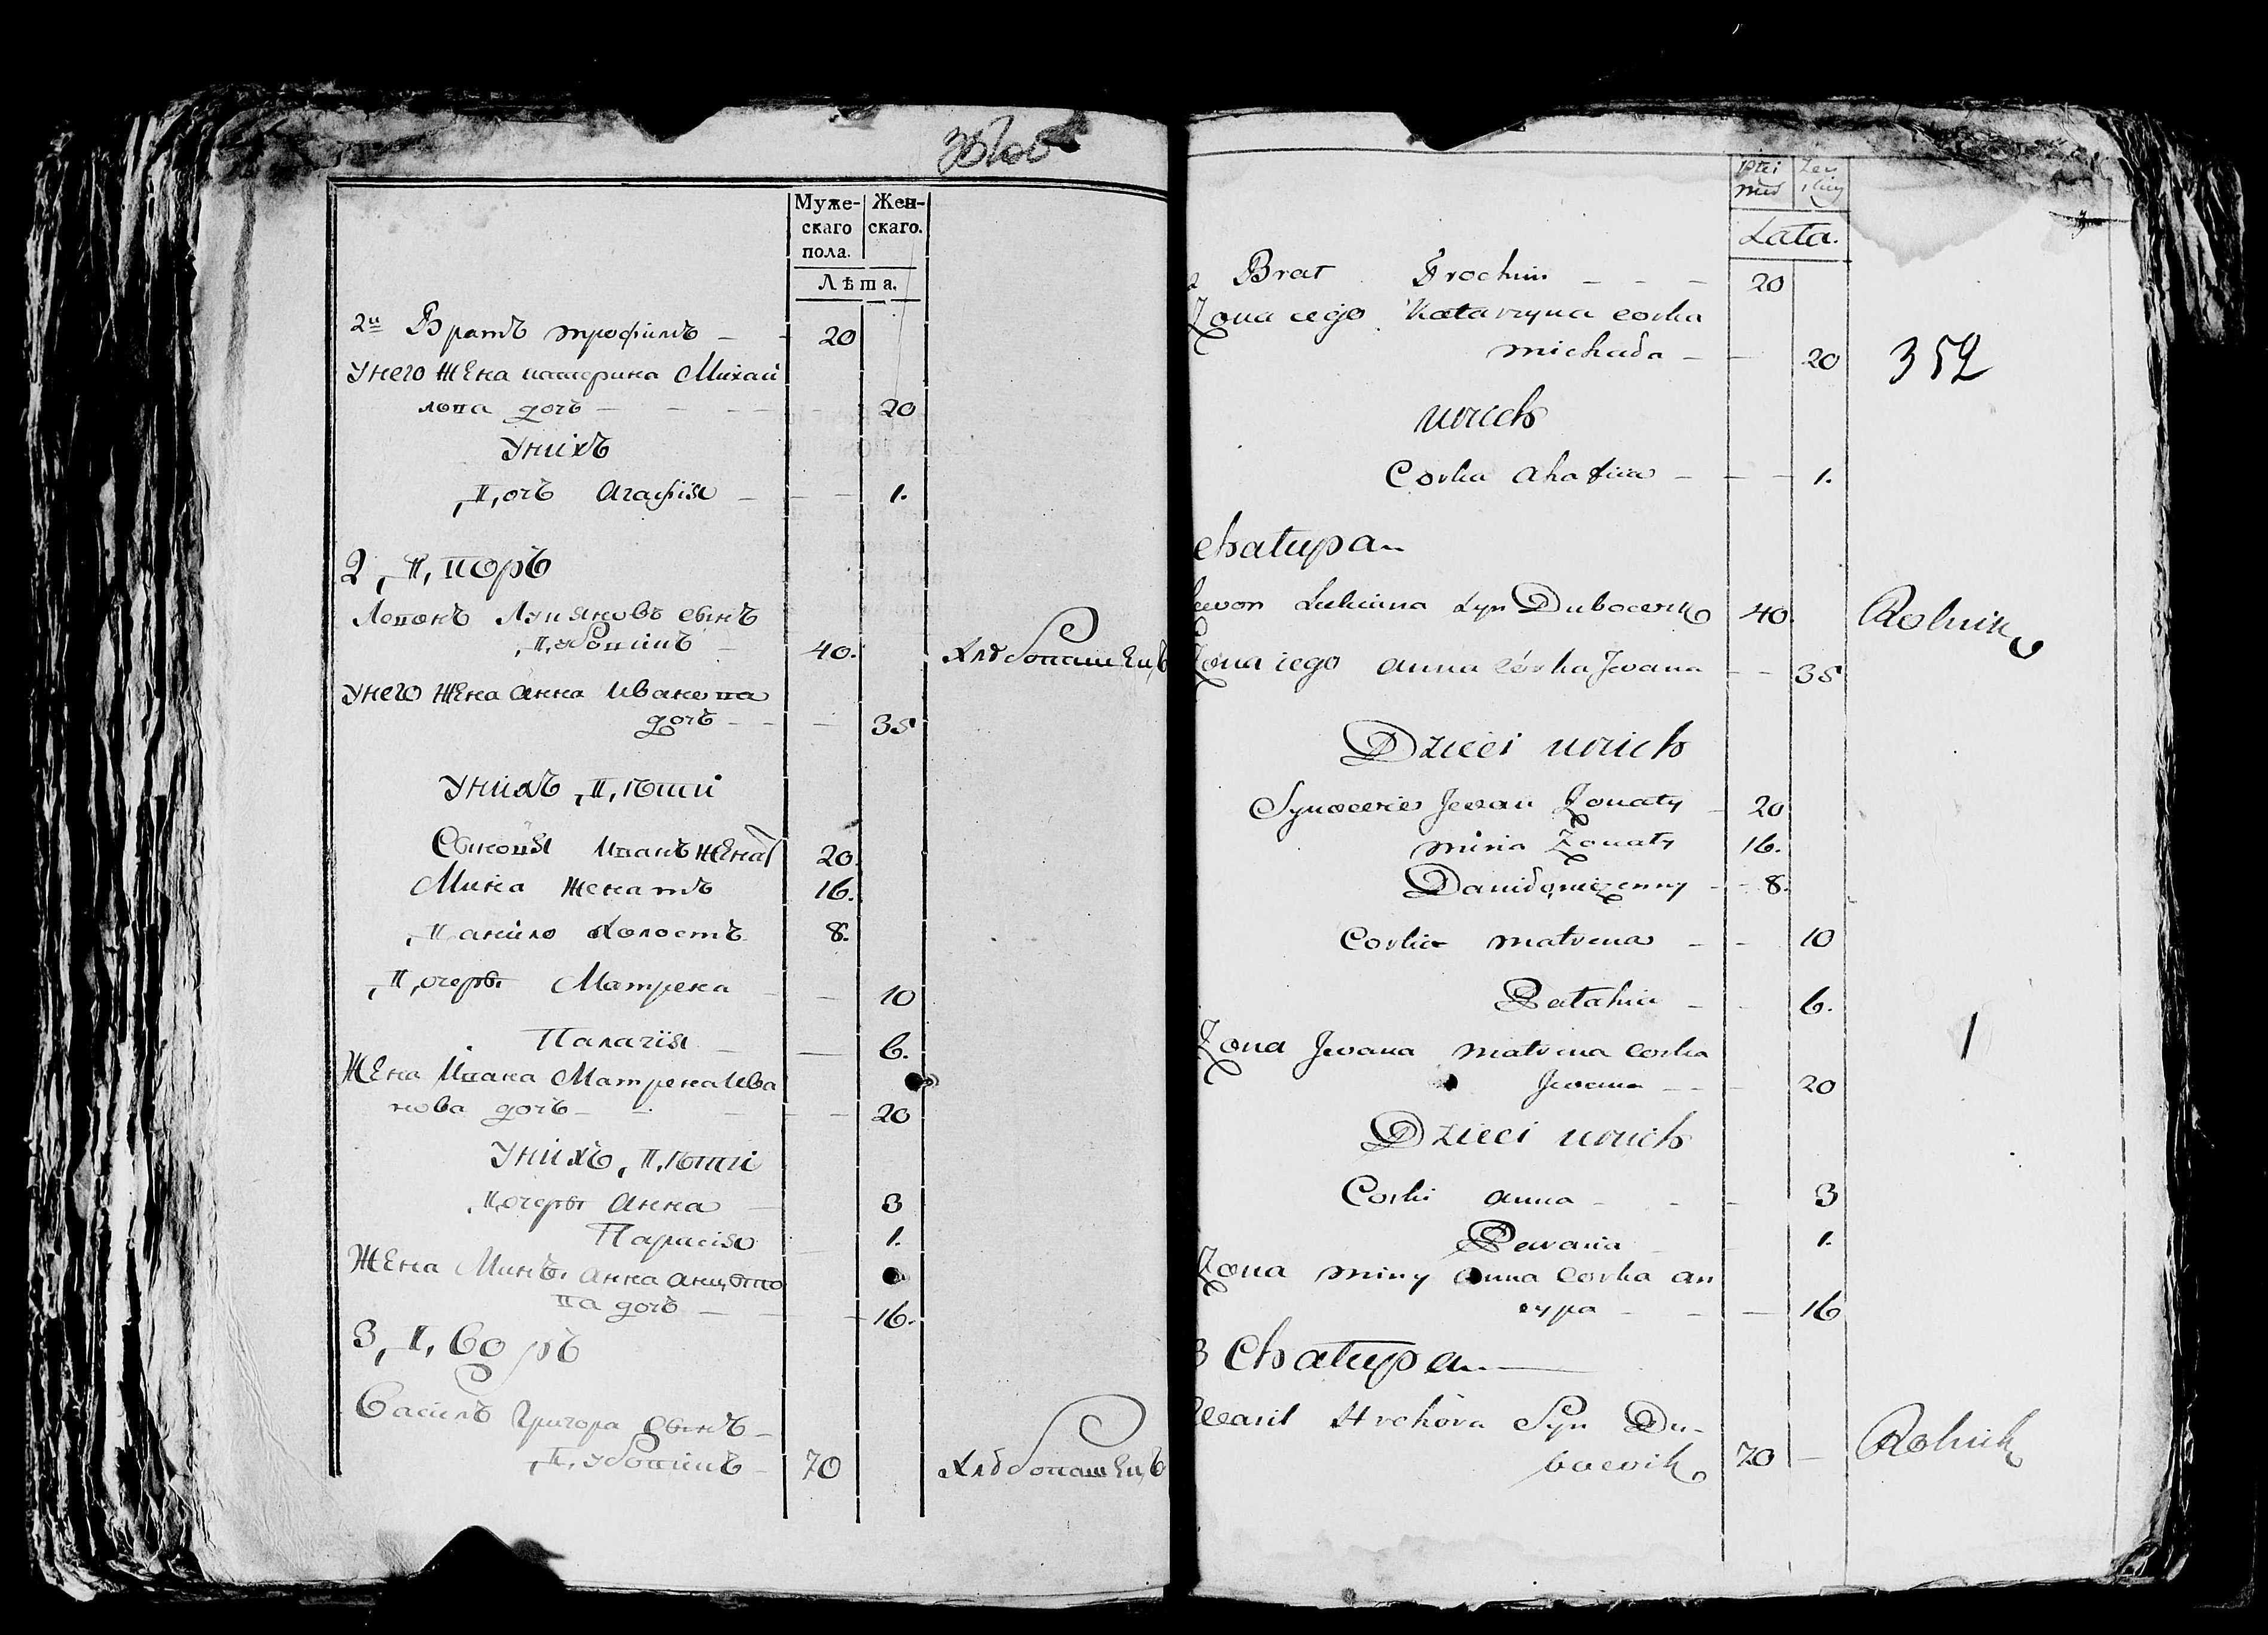 Муже-
скаго
пола.
Жен-
скаго.
Лѣта.
2й Братъ трофимъ — 20
Унего Жена катерина Михаи
лова дочь — 20
Унихъ
Дочь Агафия — 1.
2 Дворъ
Левонъ Лукяновъ сынъ
Дубовикъ — 40. Хлебопашецъ
Унего Жена Анна Иванова
дочь — 35
Унихъ Дѣти
Сыновя Иванъ Женатъ 20.
Мина Женатъ 16.
Данило Холостъ 8.
Дочеры Матрена — 10
Палагiя — 6.
Жена Ивана Матрена Ива
нова дочь — 20
Унихъ Дѣти
Дочеры Анна 3
1.
Жена Мины Анна
ва дочь — 16.
3 Дворъ
Василь Григора Сынъ
Дубовикъ — 70 Хлебопашецъ
Lata.
Brat — 20
Zona iego Katarzyna corka
Michała — 20
352
u nich
Corka Ahafia — 1.
Chałupa
Lewon Lukiana Syn Dubowik 40. Rolnik
Zona iego Anna córka Jwana — 35
Dzieci u nich
Synowie Jwan Zonaty 20
Mina Zonaty 16.
Daniło niezenny — 8.
Corka Matrena — 10
Pałahia — 6.
Zona Jwana Matrena Corka
Jwana — 20
Dzieci u nich
Corki Anna — 3
1.
Zona Miny Anna Corka An
cypa — 16
3 Chałupa
Wasil Hrehora Syn Du-
bowik 70 — Rolnik